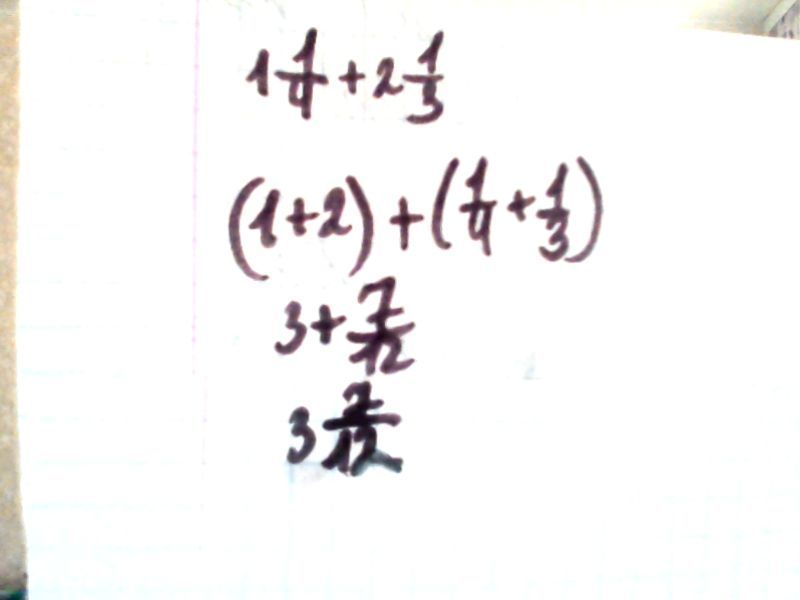 1 1/4 + 2 1/3
(1+2) + (1/4 + 1/3)
3 + 7/12
3 7/12